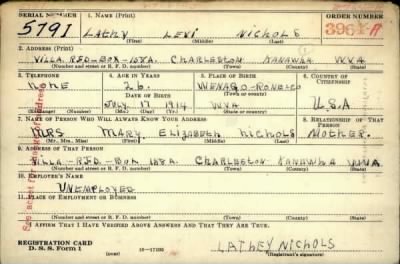 SERIAL NUMBER 1. NAME (Print) ORDER NUMBER
5791 LATHY LEVI NICHOLS 3961A
(First) (Middle) (Last)
2. ADDRESS (Print)
VILLA. RFD-BOX-108A. CHARLESTON KANAWHA W.VA
(Number and street or R. F. D. number) (Town) (County) (State)
3. TELEPHONE 4. AGE IN YEARS 5. PLACE OF BIRTH 6. COUNTRY OF CITIZENSHIP
NONE 26.
DATE OF BIRTH (Town or county)
JULY 17 1914 W.VA. U.S.A
(Exchange) (Number) (Mo.) (Day) (Yr.) (State or country)
7. NAME OF PERSON WHO WILL ALWAYS KNOW YOUR ADDRESS 8. RELATIONSHIP OF THAT PERSON
MRS MARY. ELIZABETH NICHOLS MOTHER.
(Mr., Mrs., Miss) (First) (Middle) (Last)
9. ADDRESS OF THAT PERSON
VILLA-RFD-BOX 108A. CHARLESTON KANAWHA W.VA.
(Number and street or R. F. D. number) (Town) (County) (State)
10. EMPLOYER'S NAME
UNEMPLOYED
11. PLACE OF EMPLOYMENT OR BUSINESS
(Number and street or R. F. D. number) (Town) (County) (State)
I AFFIRM THAT I HAVE VERIFIED ABOVE ANSWERS AND THAT THEY ARE TRUE.
REGISTRATION CARD
D. S. S. Form 1 16-17105 LATHEY NICHOLS
(Registrant's signature)